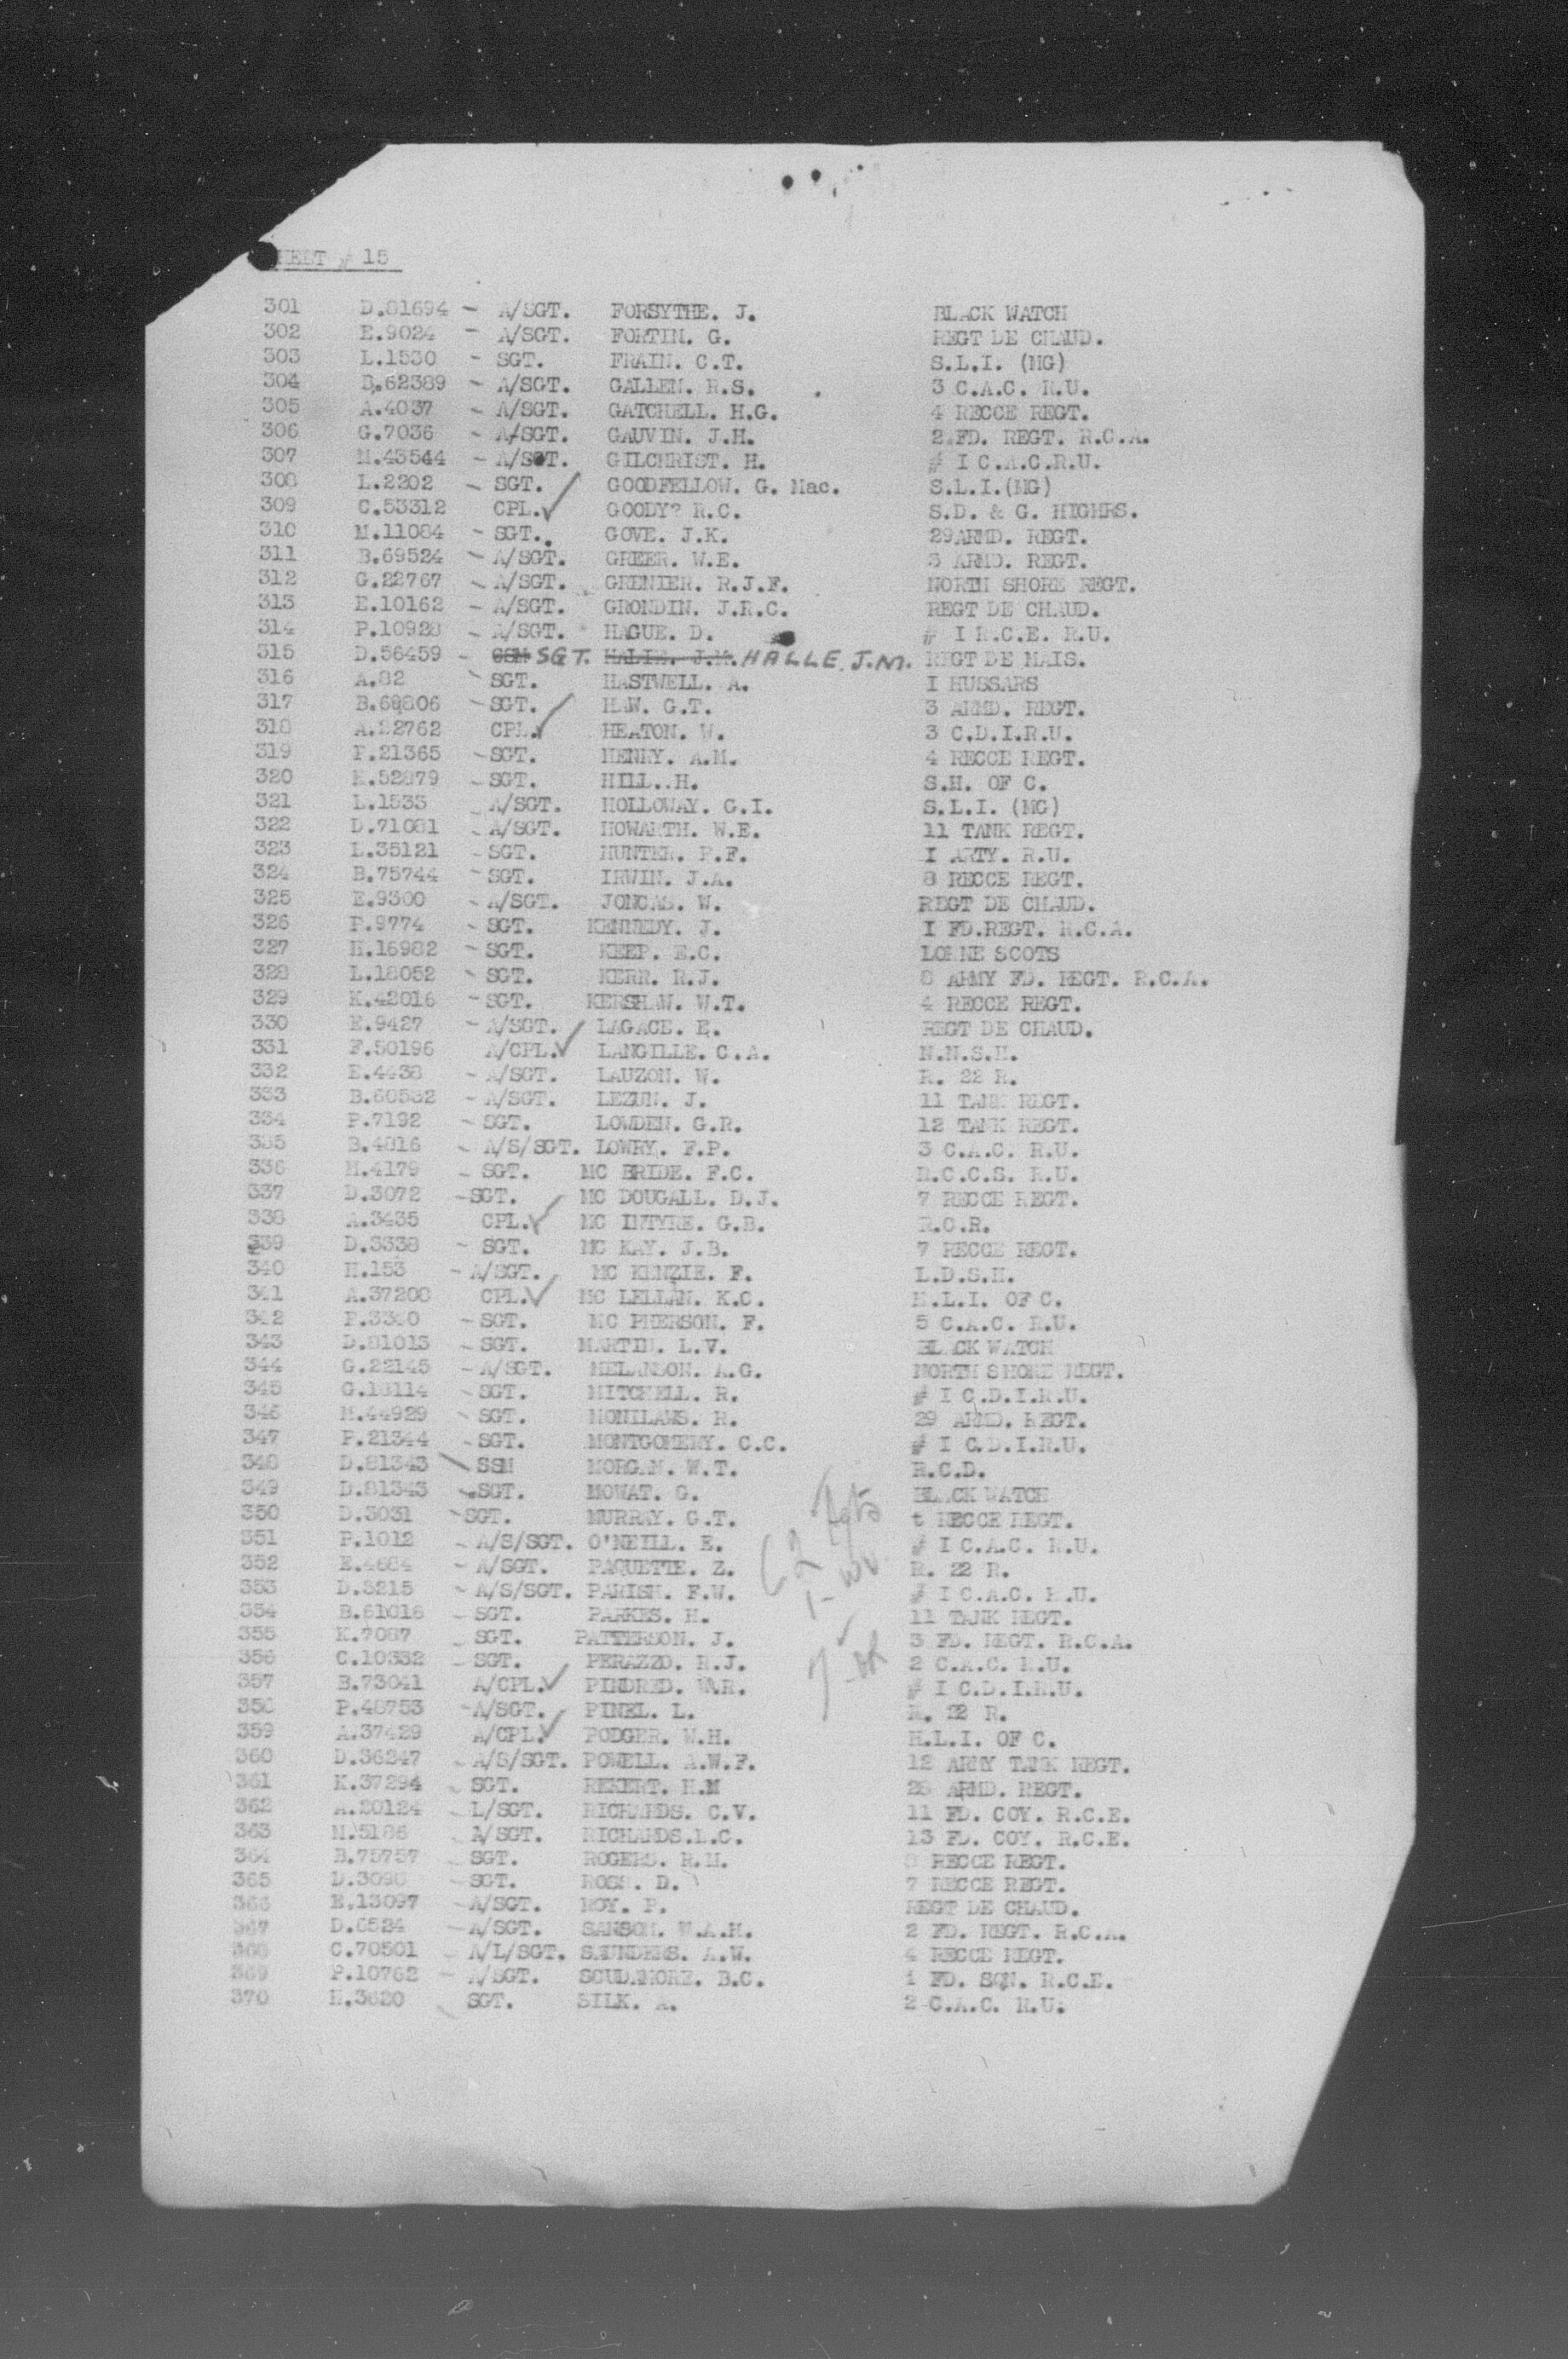 SHEET # 15
301 D.81694 - A/SGT. FORSYTHE. J. BLACK WATCH
302 E.9024 - A/SGT. FORTIN. G. REGT DE CHAUD.
303 L.1530 - SGT. FRAIN. C.T. S.L.I. (MG)
304 B.62389 - A/SGT. GALLEN. R.S. 3 C.A.C. R.U.
305 A.4037 - A/SGT. GATCHELL. H.G. 4 RECCE REGT.
306 G.7036 - A/SGT. GAUVIN. J.H. 2.FD. REGT. R.C.A.
307 M.43544 - A/SGT. GILCHRIST. H. # I C.A.C.R.U.
308 L.2202 - SGT. GOODFELLOW. G. Mac. S.L.I.(MG)
309 C.53312 CPL. ✓ GOODY? R.C. S.D. & G. HIGHRS.
310 M.11084 - SGT. GOVE. J.K. 29ARMD. REGT.
311 B.69524 - A/SGT. GREER. W.E. 5 ARMD. REGT.
312 G.22767 - A/SGT. GRENIER. R.J.F. NORTH SHORE REGT.
313 E.10162 - A/SGT. GRONDIN. J.R.C. REGT DE CHAUD.
314 P.10928 - A/SGT. HAGUE. D. # I R.C.E. R.U.
315 D.56459 - CSM SGT. HALIE. J.M. HALLE J.M. REGT DE MAIS.
316 A.82 - SGT. HASTWELL. A. I HUSSARS
317 - SGT. HAW. G.T. 3 ARMD. REGT.
318 A.22762 CPL. ✓ HEATON. W. 3 C.D.I.R.U.
319 F.21365 - SGT. HENRY. A.M. 4 RECCE REGT.
320 K.52879 - SGT. HILL..H. S.H. OF C.
321 L.1533 - A/SGT. HOLLOWAY. G.I. S.L.I. (MG)
322 D.71081 - A/SGT. HOWARTH. W.E. 11 TANK REGT.
323 L.35121 - SGT. HUNTER. P.F. I ARTY. R.U.
324 B.75744 - SGT. IRWIN. J.A. 8 RECCE REGT.
325 E.9300 - A/SGT. JONCAS. W. REGT DE CHAUD.
326 P.9774 - SGT. KENNEDY. J. I FD.REGT. R.C.A.
327 H.16982 - SGT. KEEP. E.C. LORNE SCOTS
328 L.18052 - SGT. KERR. R.J. 8 ARMY FD. REGT. R.C.A.
329 K.42016 - SGT. KERSHAW. W.T. 4 RECCE REGT.
330 E.9427 - A/SGT. LAGACE. E. REGT DE CHAUD.
331 F.50196 A/CPL. ✓ LANGILLE. C.A. N.N.S.H.
332 E.4438 - A/SGT. LAUZON. W. R. 22 R.
333 B.60532 - A/SGT. LEZUN. J. 11 TANK REGT.
334 P.7192 - SGT. LOWDEN. G.R. 12 TANK REGT.
335 B.4816 - A/S/SGT. LOWRY. F.P. 3 C.A.C. R.U.
336 M.4179 - SGT. MC BRIDE. F.C. R.C.C.S. R.U.
337 D.3072 - SGT. MC DOUGALL. D.J. 7 RECCE REGT.
338 A.3435 CPL. ✓ MC INTYRE. G.B. R.C.R.
339 D.3338 - SGT. MC KAY. J.B. 7 RECCE REGT.
340 H.153 - A/SGT. MC KENZIE. F. L.D.S.H.
341 A.37208 CPL. ✓ MC LELLAN. K.C. H.L.I. OF C.
342 - SGT. MC PHERSON. F. 5 C.A.C. R.U.
343 D.81013 - SGT. MARTIN. L.V. BLACK WATCH
344 G.22145 - A/SGT. MELANSON. A.G. NORTH SHORE REGT.
345 G.18114 - SGT. MITCHELL. R. # I C.D.I.R.U.
346 M.44929 - SGT. MONILAWS. R. 29 ARMD. REGT.
347 F.21344 - SGT. MONTGOMERY. C.C. # I C.D.I.R.U.
348 D.81343 - SSM MORGAN. W.T. R.C.D.
349 D.81343 - SGT. MOWAT. G. BLACK WATCH
350 D.3031 - SGT. MURRAY. G.T. t RECCE REGT.
351 P.1012 - A/S/SGT. O'NEILL. E. # I C.A.C. R.U.
352 E.4684 - A/SGT. PAQUETTE. Z. R. 22 R.
353 D.3215 - A/S/SGT. PARISH. F.W. # I C.A.C. R.U.
354 B.61016 - SGT. PARKES. H. 11 TANK REGT.
355 K.7087 - SGT. PATTERSON. J. 3 FD. REGT. R.C.A.
356 C.10332 - SGT. PERAZZO. R.J. 2 C.A.C. R.U.
357 B.73041 A/CPL. ✓ PINDRED. W.R. # I C.D.I.R.U.
358 P.48753 - A/SGT. PINEL. L. R. 22 R.
359 A.37429 A/CPL. ✓ PODGER. W.H. H.L.I. OF C.
360 D.36247 - A/S/SGT. POWELL. A.W.F. 12 ARMY TANK REGT.
361 K.37294 - SGT. REKERT. H.M 28 ARMD. REGT.
362 A.20124 - L/SGT. RICHARDS. C.V. 11 FD. COY. R.C.E.
363 M.5186 A/SGT. RICHARDS.L.C. 13 FD. COY. R.C.E.
364 B.75757 - SGT. ROGERS. R.M. 8 RECCE REGT.
365 D.3090 - SGT. ROSS. D. 7 RECCE REGT.
366 E.13097 - A/SGT. ROY. P. REGT DE CHAUD.
367 D.6524 - A/SGT. SANSON. W.A.H. 2 FD. REGT. R.C.A.
368 C.70501 - A/L/SGT. SAUNDERS. A.W. 4 RECCE REGT.
369 P.10762 - A/SGT. SCUDAMORE. B.C. 1 FD. SQN. R.C.E.
370 H.3620 SGT. SILK. A. 2 C.A.C. R.U.